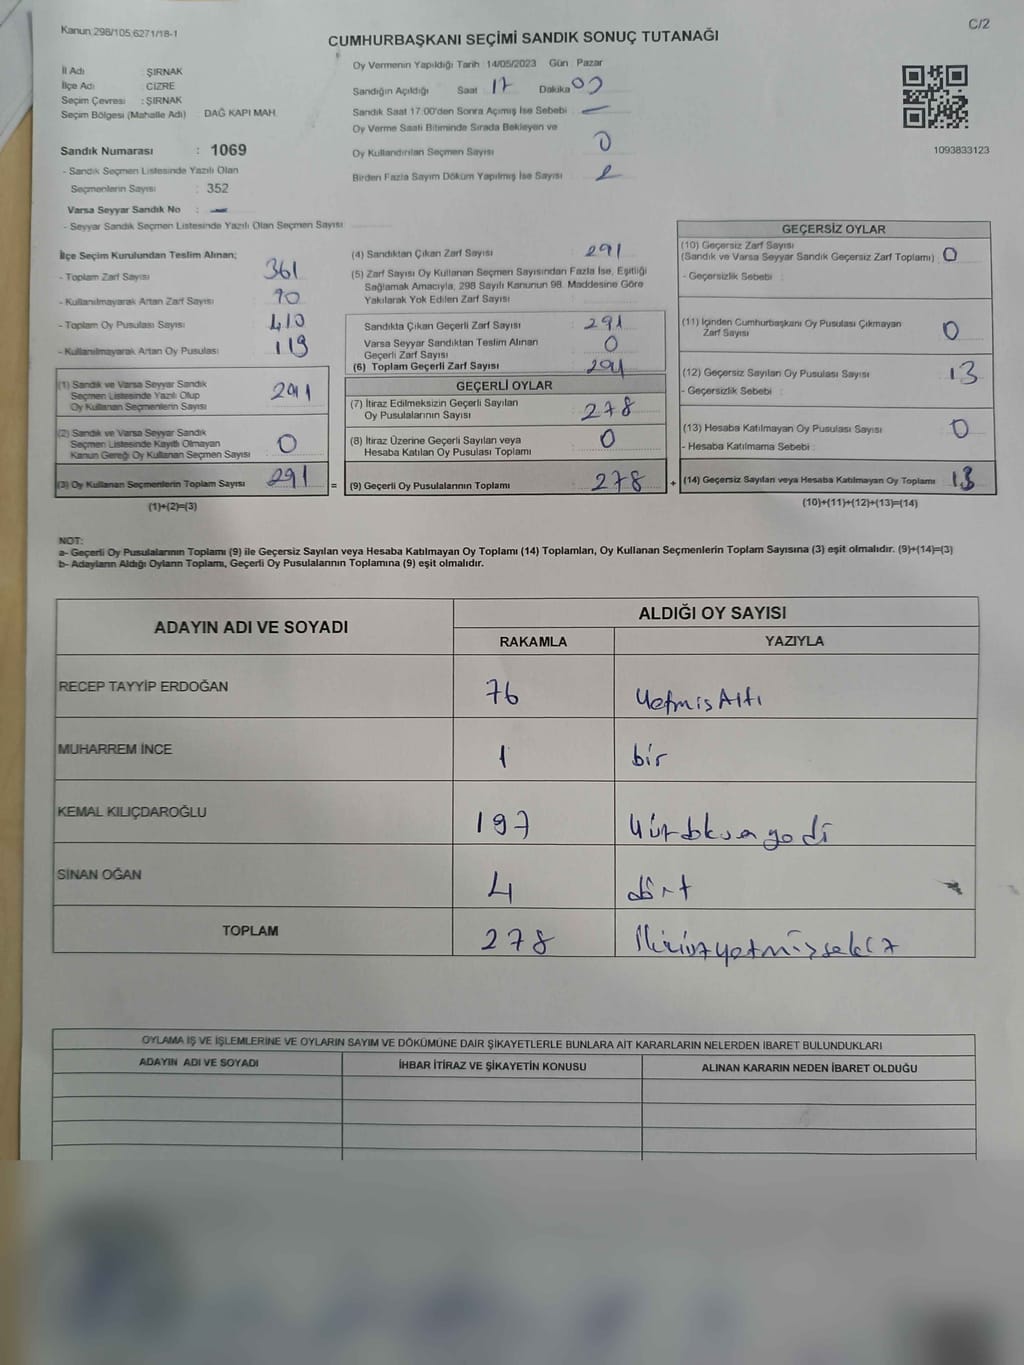 Kanun 298/105,6271/18-1
C/2
CUMHURBAŞKANI SEÇİMİ SANDIK SONUÇ TUTANAĞI
İl Adı : ŞIRNAK
İlçe Adı : CİZRE
Seçim Çevresi : ŞIRNAK
Seçim Bölgesi (Mahalle Adı) : DAĞ KAPI MAH.
Sandık Numarası : 1069
- Sandık Seçmen Listesinde Yazılı Olan
Seçmenlerin Sayısı : 352
Varsa Seyyar Sandık No : —
- Seyyar Sandık Seçmen Listesinde Yazılı Olan Seçmen Sayısı
Oy Vermenin Yapıldığı Tarih : 14/05/2023 Gün : Pazar
Sandığın Açıldığı Saat 17 Dakika 00
Sandık Saat 17:00'den Sonra Açımış İse Sebebi : —
Oy Verme Saati Bitiminde Sırada Bekleyen ve
Oy Kullandırılan Seçmen Sayısı 0
Birden Fazla Sayım Döküm Yapılmış İse Sayısı
1093833123
İlçe Seçim Kurulundan Teslim Alınan;
- Toplam Zarf Sayısı 361
- Kullanılmayarak Artan Zarf Sayısı : 70
- Toplam Oy Pusulası Sayısı : 410
- Kullanılmayarak Artan Oy Pusulası : 119
(1) Sandık ve Varsa Seyyar Sandık
Seçmen Listesinde Yazılı Olup
Oy Kullanan Seçmenlerin Sayısı 291
(2) Sandık ve Varsa Seyyar Sandık
Seçmen Listesinde Kayıtlı Olmayan
Kanun Gereği Oy Kullanan Seçmen Sayısı 0
(3) Oy Kullanan Seçmenlerin Toplam Sayısı 291
(1)+(2)=(3)
=
(4) Sandıktan Çıkan Zarf Sayısı : 291
(5) Zarf Sayısı Oy Kullanan Seçmen Sayısından Fazla İse, Eşitliği
Sağlamak Amacıyla, 298 Sayılı Kanunun 98. Maddesine Göre
Yakılarak Yok Edilen Zarf Sayısı :
Sandıkta Çıkan Geçerli Zarf Sayısı : 291
Varsa Seyyar Sandıktan Teslim Alınan
Geçerli Zarf Sayısı : 0
(6) Toplam Geçerli Zarf Sayısı : 291
GEÇERLİ OYLAR
(7) İtiraz Edilmeksizin Geçerli Sayılan
Oy Pusulalarının Sayısı : 278
(8) İtiraz Üzerine Geçerli Sayılan veya
Hesaba Katılan Oy Pusulası Toplamı : 0
(9) Geçerli Oy Pusulalarının Toplamı : 278
+
GEÇERSİZ OYLAR
(10) Geçersiz Zarf Sayısı
(Sandık ve Varsa Seyyar Sandık Geçersiz Zarf Toplamı) : 0
- Geçersizlik Sebebi :
(11) İçinden Cumhurbaşkanı Oy Pusulası Çıkmayan
Zarf Sayısı 0
(12) Geçersiz Sayılan Oy Pusulası Sayısı : 13
- Geçersizlik Sebebi :
(13) Hesaba Katılmayan Oy Pusulası Sayısı : 0
- Hesaba Katılmama Sebebi :
(14) Geçersiz Sayılan veya Hesaba Katılmayan Oy Toplamı : 13
(10)+(11)+(12)+(13)=(14)
NOT:
a- Geçerli Oy Pusulalarının Toplamı (9) ile Geçersiz Sayılan veya Hesaba Katılmayan Oy Toplamı (14) Toplamları, Oy Kullanan Seçmenlerin Toplam Sayısına (3) eşit olmalıdır. (9)+(14)=(3)
b- Adayların Aldığı Oyların Toplamı, Geçerli Oy Pusulalarının Toplamına (9) eşit olmalıdır.
ADAYIN ADI VE SOYADI
ALDIĞI OY SAYISI
RAKAMLA YAZIYLA
RECEP TAYYİP ERDOĞAN 76 YetmisAltı
MUHARREM İNCE 1 bir
KEMAL KILIÇDAROĞLU 197
SİNAN OĞAN 4 dört
TOPLAM 278 İkiyüzyetmişsekiz
OYLAMA İŞ VE İŞLEMLERİNE VE OYLARIN SAYIM VE DÖKÜMÜNE DAİR ŞİKAYETLERLE BUNLARA AİT KARARLARIN NELERDEN İBARET BULUNDUKLARI
ADAYIN ADI VE SOYADI İHBAR İTİRAZ VE ŞİKAYETİN KONUSU ALINAN KARARIN NEDEN İBARET OLDUĞU